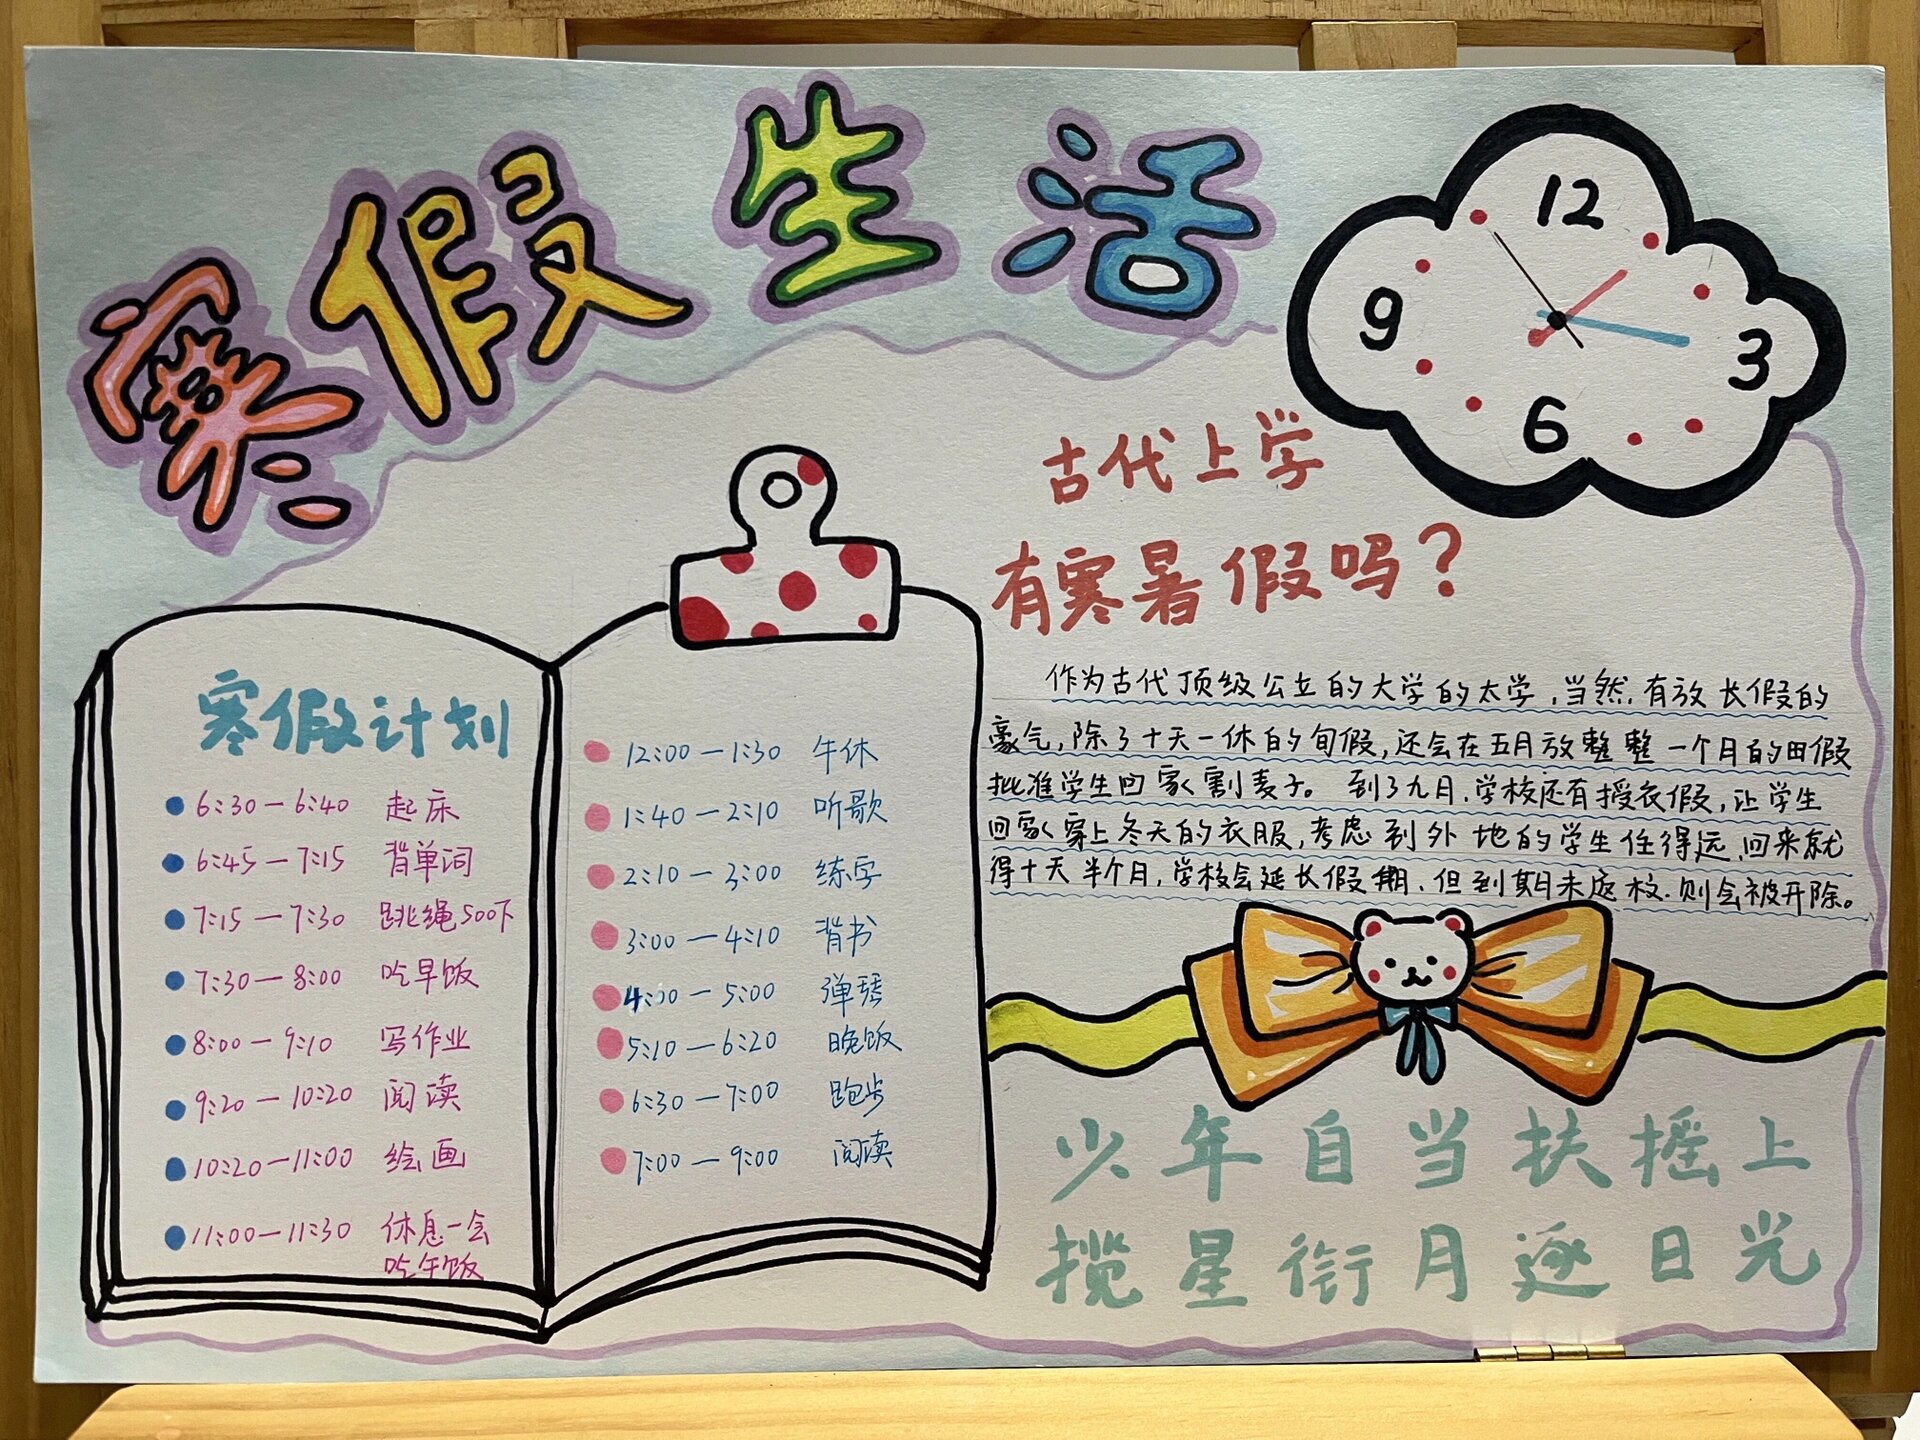 寒假生活
12
3
6
9
古代上学
有寒暑假吗?
作为古代顶级公立的大学的太学,当然,有放长假的
豪气,除了十天一休的旬假,还会在五月放整整一个月的田假
批准学生回家割麦子。到了九月,学校还有授衣假,让学生
回家穿上冬天的衣服,考虑到外地的学生住得远,回来就
得十天半个月,学校会延长假期,但到期未返校,则会被开除。
寒假计划
6:30—6:40 起床
6:45—7:15 背单词
7:15—7:30 跳绳500下
7:30—8:00 吃早饭
8:00—9:10 写作业
9:20—10:20 阅读
10:20—11:00 绘画
11:00—11:30 休息一会
吃午饭
12:00—1:30 午休
1:40—2:10 听歌
2:10—3:00 练字
3:00—4:10 背书
4:00—5:00 弹琴
5:10—6:20 晚饭
6:30—7:00 跑步
7:00—9:00 阅读
少年自当扶摇上
揽星衔月逐日光